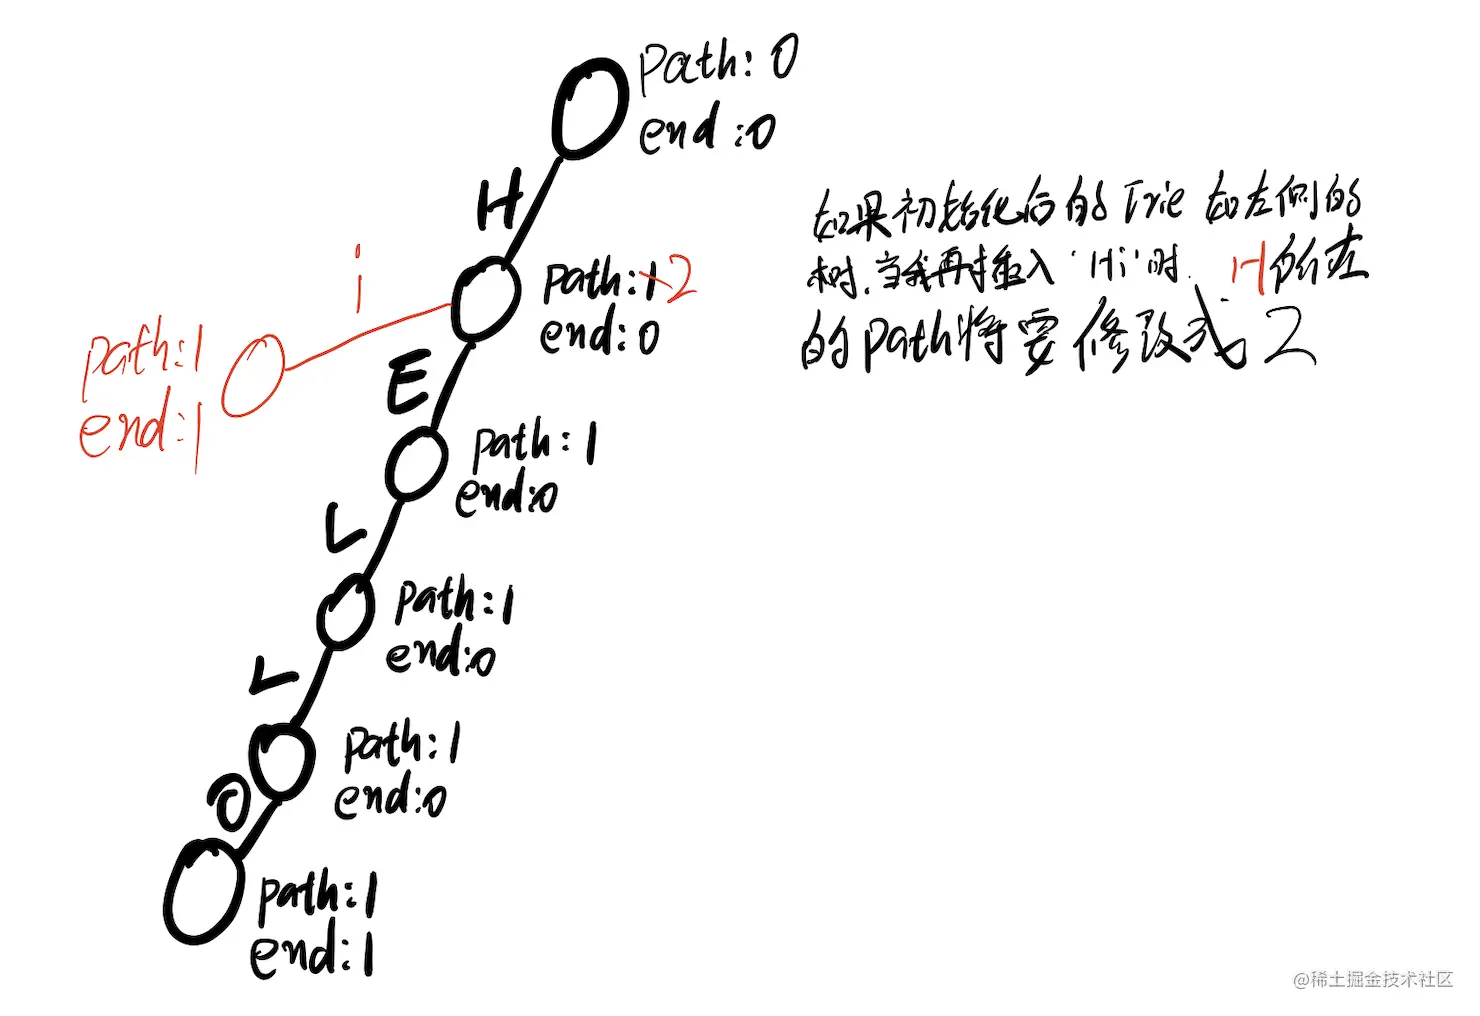 path: 0
end: 0
H
如果初始化后的 Trie 如左侧的
树,当我再插入 'Hi' 时. H所在
的path将要修改成 2
i
path:1 2
end:0
path:1
end:1
E
path:1
end:0
L
path:1
end:0
L
path:1
end:0
O
path:1
end:1
@稀土掘金技术社区